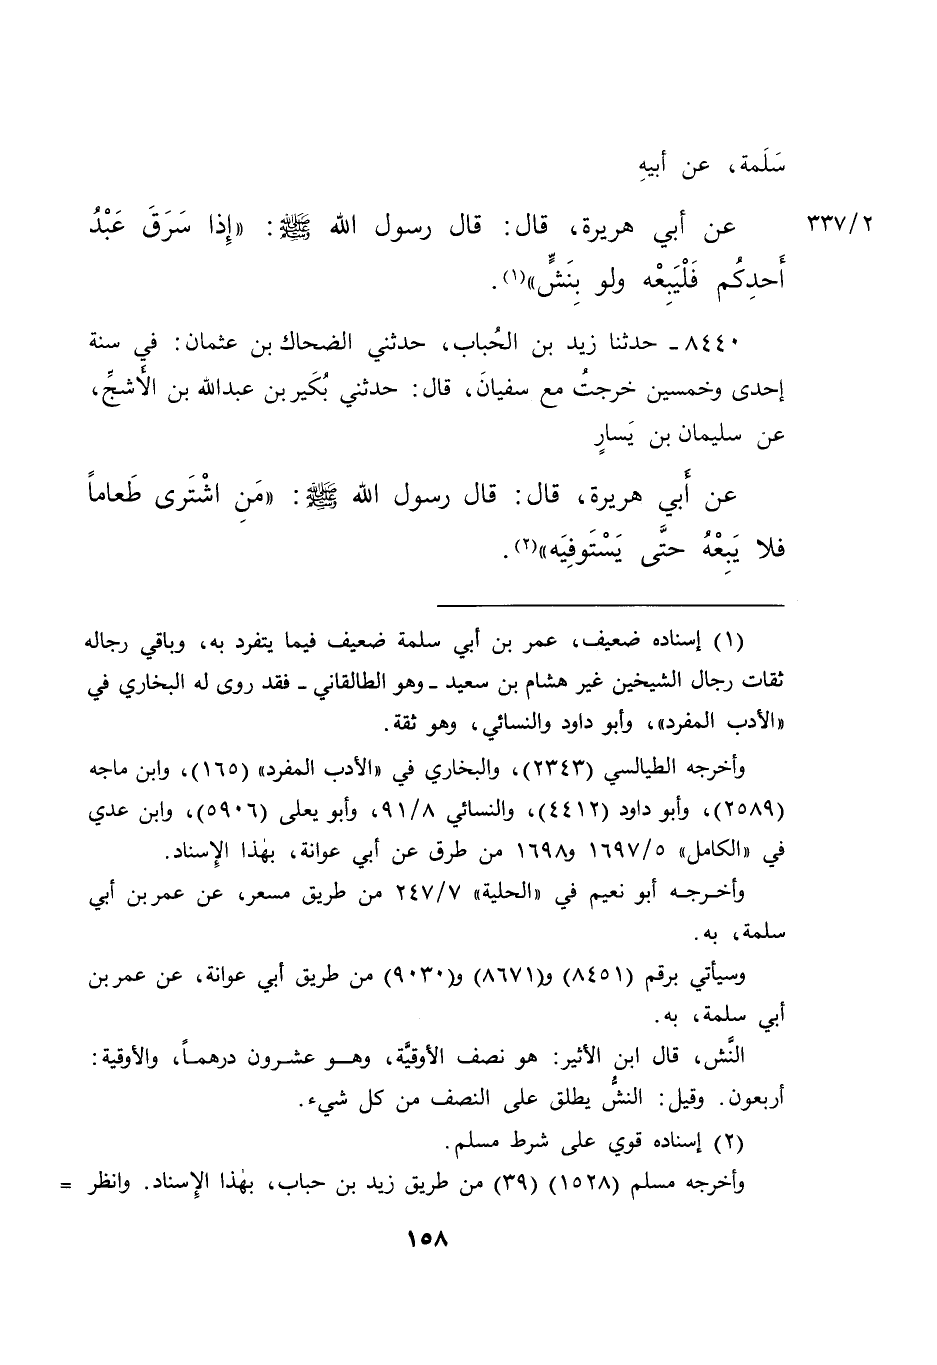 سَلَمة، عن أبيهِ
٣٣٧/٢ عن أبي هريرة، قال: قال رسول الله ﷺ: «إِذا سَرَقَ عَبْدُ
أَحدِكُم فَلْيَبِعْه ولو بِنَشٍّ»(١).
٨٤٤٠ـ حدثنا زيد بن الحُباب، حدثني الضحاك بن عثمان: في سنة
إحدى وخمسين خرجتُ مع سفيانَ، قال: حدثني بُكَير بن عبدالله بن الأَشجِّ،
عن سليمان بن يَسارٍ
عن أَبي هريرة، قال: قال رسول الله ﷺ: «مَنِ اشْتَرى طَعاماً
فلا يَبِعْهُ حتَّى يَسْتَوفِيَه»(٢).
(١) إسناده ضعيف، عمر بن أبي سلمة ضعيف فيما يتفرد به، وباقي رجاله
ثقات رجال الشيخين غير هشام بن سعيد ـ وهو الطالقاني ـ فقد روى له البخاري في
«الأدب المفرد»، وأبو داود والنسائي، وهو ثقة.
وأخرجه الطيالسي (٢٣٤٣)، والبخاري في «الأدب المفرد» (١٦٥)، وابن ماجه
(٢٥٨٩)، وأبو داود (٤٤١٢)، والنسائي ٩١/٨، وأبو يعلى (٥٩٠٦)، وابن عدي
في «الكامل» ١٦٩٧/٥ و١٦٩٨ من طرق عن أبي عوانة، بهٰذا الإِسناد.
وأخرجه أبو نعيم في «الحلية» ٢٤٧/٧ من طريق مسعر، عن عمر بن أبي
سلمة، به.
وسيأتي برقم (٨٤٥١) و(٨٦٧١) و(٩٠٣٠) من طريق أبي عوانة، عن عمر بن
أبي سلمة، به.
النَّش، قال ابن الأثير: هو نصف الأوقيَّة، وهو عشرون درهماً، والأوقية:
أربعون. وقيل: النشُّ يطلق على النصف من كل شيء.
(٢) إسناده قوي على شرط مسلم.
وأخرجه مسلم (١٥٢٨) (٣٩) من طريق زيد بن حباب، بهٰذا الإِسناد. وانظر =
١٥٨